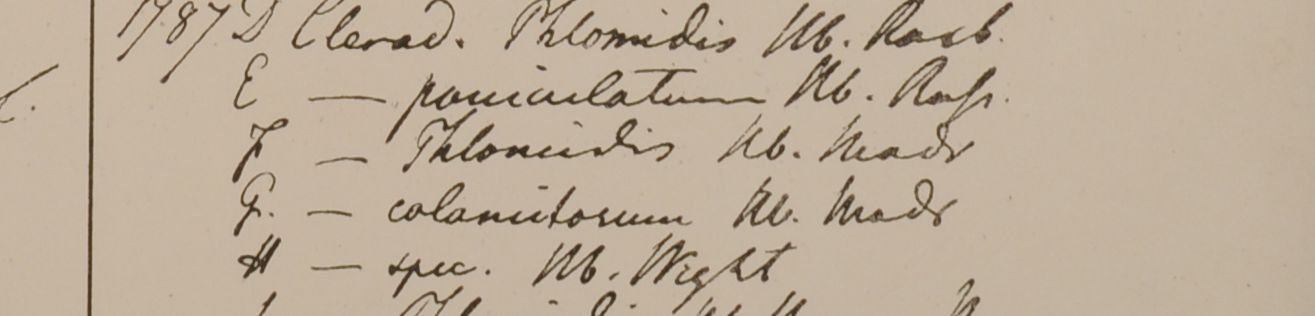 1787 D Clerod. Phlomidis Hb. Roxb.
E — paniculatum Hb.
F — Phlomidis Hb. Madr
G. — calamitosum Hb. Madr
H — spec. Hb. Wight